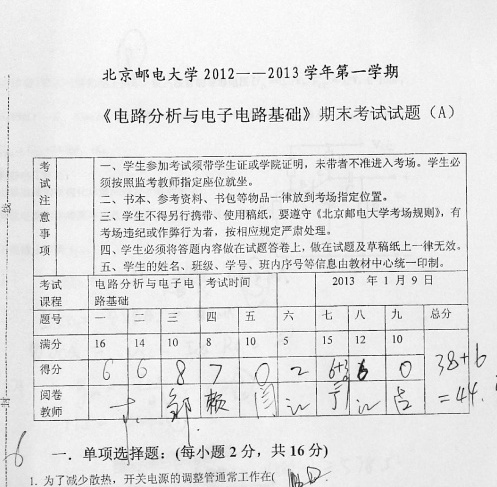 北京邮电大学 2012——2013 学年第一学期
《电路分析与电子电路基础》期末考试试题（A）
考试注意事项
一、学生参加考试须带学生证或学院证明，未带者不准进入考场。学生必
须按照监考教师指定座位就坐。
二、书本、参考资料、书包等物品一律放到考场指定位置。
三、学生不得另行携带、使用稿纸，要遵守《北京邮电大学考场规则》，有
考场违纪或作弊行为者，按相应规定严肃处理。
四、学生必须将答题内容做在试题答卷上，做在试题及草稿纸上一律无效。
五、学生的姓名、班级、学号、班内序号等信息由教材中心统一印制。
考试课程 电路分析与电子电路基础 考试时间 2013 年 1 月 9 日
题号 一 二 三 四 五 六 七 八 九 总分
满分 16 14 10 8 10 5 15 12 10
得分 6 6 8 7 0 2 6+3 6 0 38+6
阅卷教师 邹 赖 闫 =44.
6
一．单项选择题：(每小题 2 分，共 16 分)
1. 为了减少散热，开关电源的调整管通常工作在(